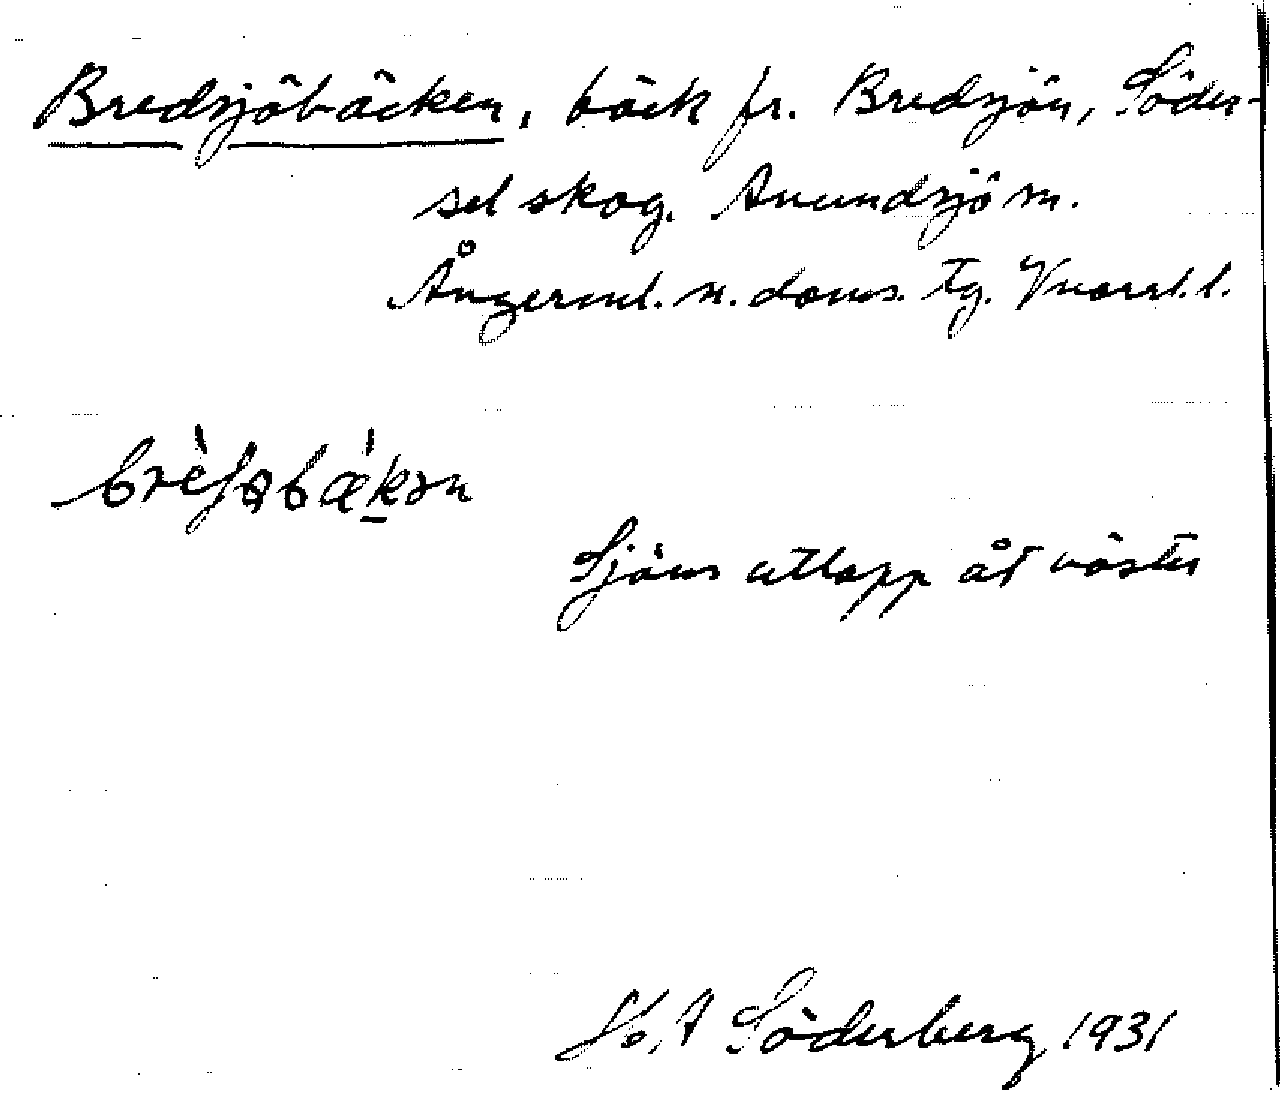 Bredsjöbäcken, bäck fr. Bredsjön, Söder-
sel skog. Anundsjö sn.
Ångerml. n. doms. tg. Vnorrl. l.
Sjöns utlopp åt väster
Söderberg 1931